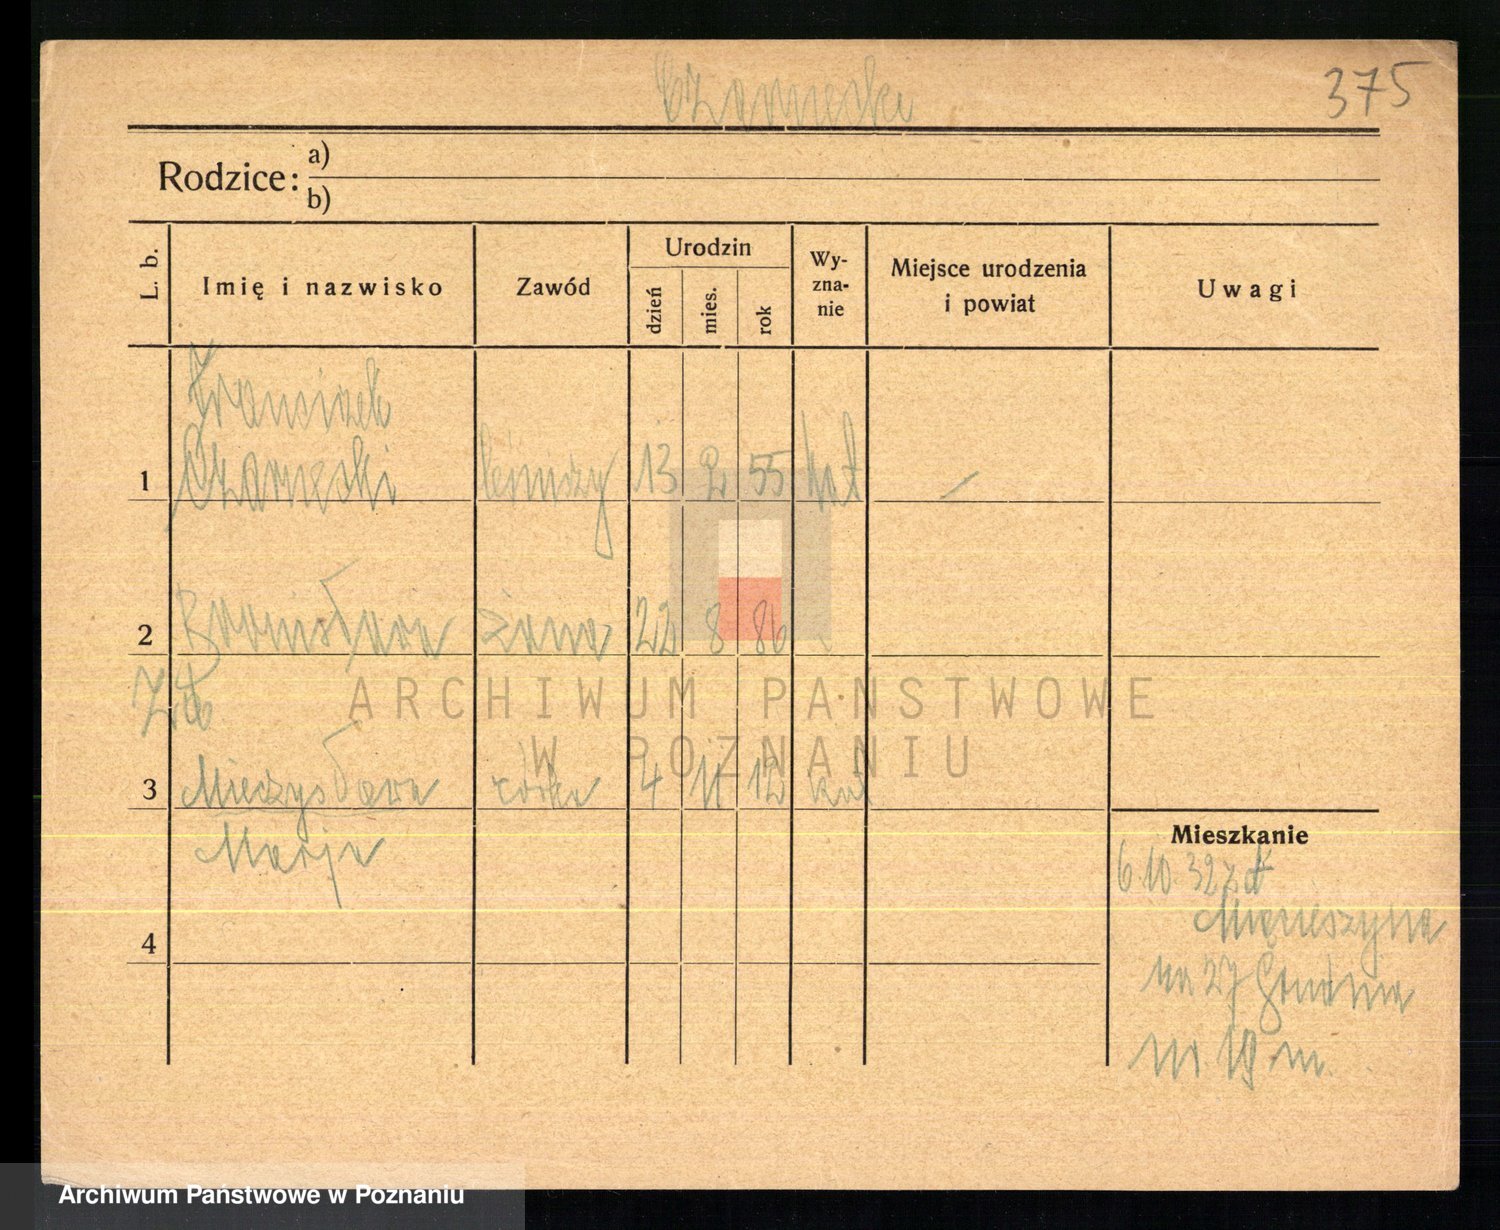 Czarnecki
375
Rodzice:
a)
b)
L. b.
Imię i nazwisko
Zawód
Urodzin
dzień
mies.
rok
Wy-
zna-
nie
Miejsce urodzenia
i powiat
Uwagi
Franciszek
1 Czarnecki leśniczy 13 2 55 kat —
2 Bronisława żona 22 8 86
ARCHIWUM PAŃSTWOWE
W POZNANIU
3 Mieczysława córka 4 11 12 kat
Marja
4
Mieszkanie
6.10.32
na 27 Grudnia
nr 19 m.
Archiwum Państwowe w Poznaniu